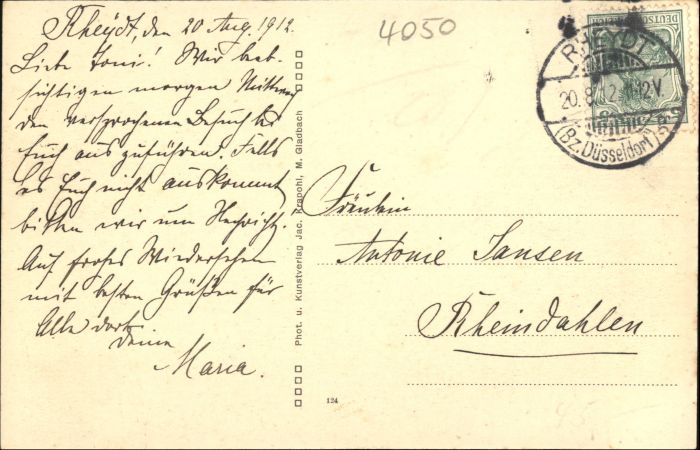 Rheydt, den 20 Aug. 1912.
Liebe Toni! Wir beab-
sichtigen morgen Mittwoch
den versprochenen Besuch bei
Euch auszuführen. Falls
es Euch nicht auskommt
bitten wir um Nachricht!
Auf frohes Wiedersehen
mit besten Grüßen für
Alle dort
Deine
Maria.
Phot. u. Kunstverlag Jac. Krapohl, M. Gladbach
124
4050
DEUTSCHES REICH
RHEYDT
20.8.12. 11-12V
(Bz. Düsseldorf)
Fräulein
Antonie Jansen
Rheindahlen